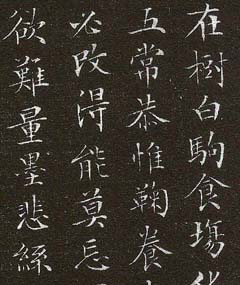 在樹白駒食塲
五常恭惟鞠養
必改得能莫忘
欲難量墨悲絲